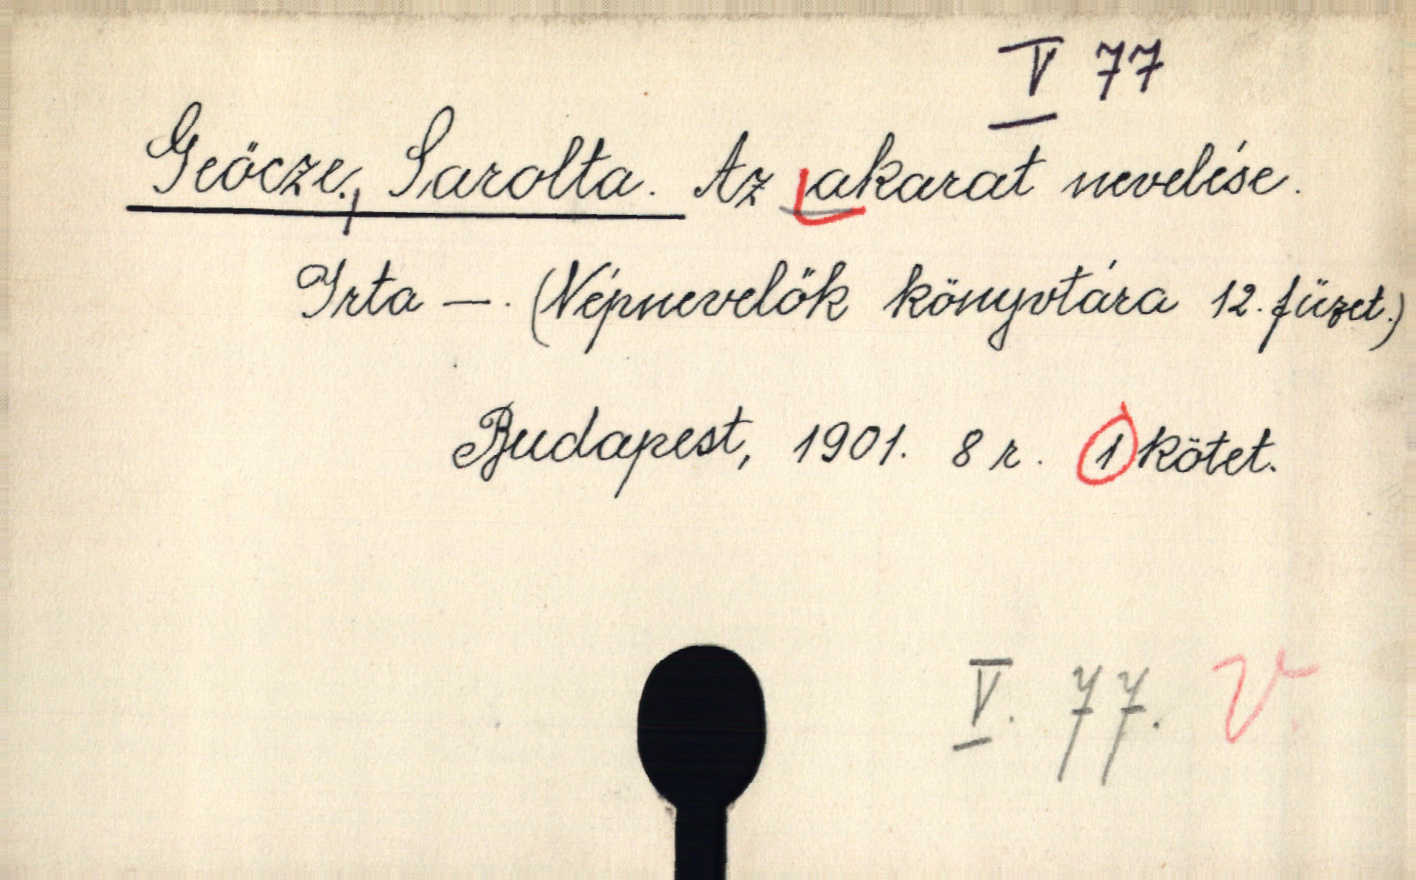 V 77
Geőcze, Sarolta. Az akarat nevelése.
Irta —. (Népnevelők könyvtára 12. füzet.)
Budapest, 1901. 8 r. 1 kötet.
V. 77. V.